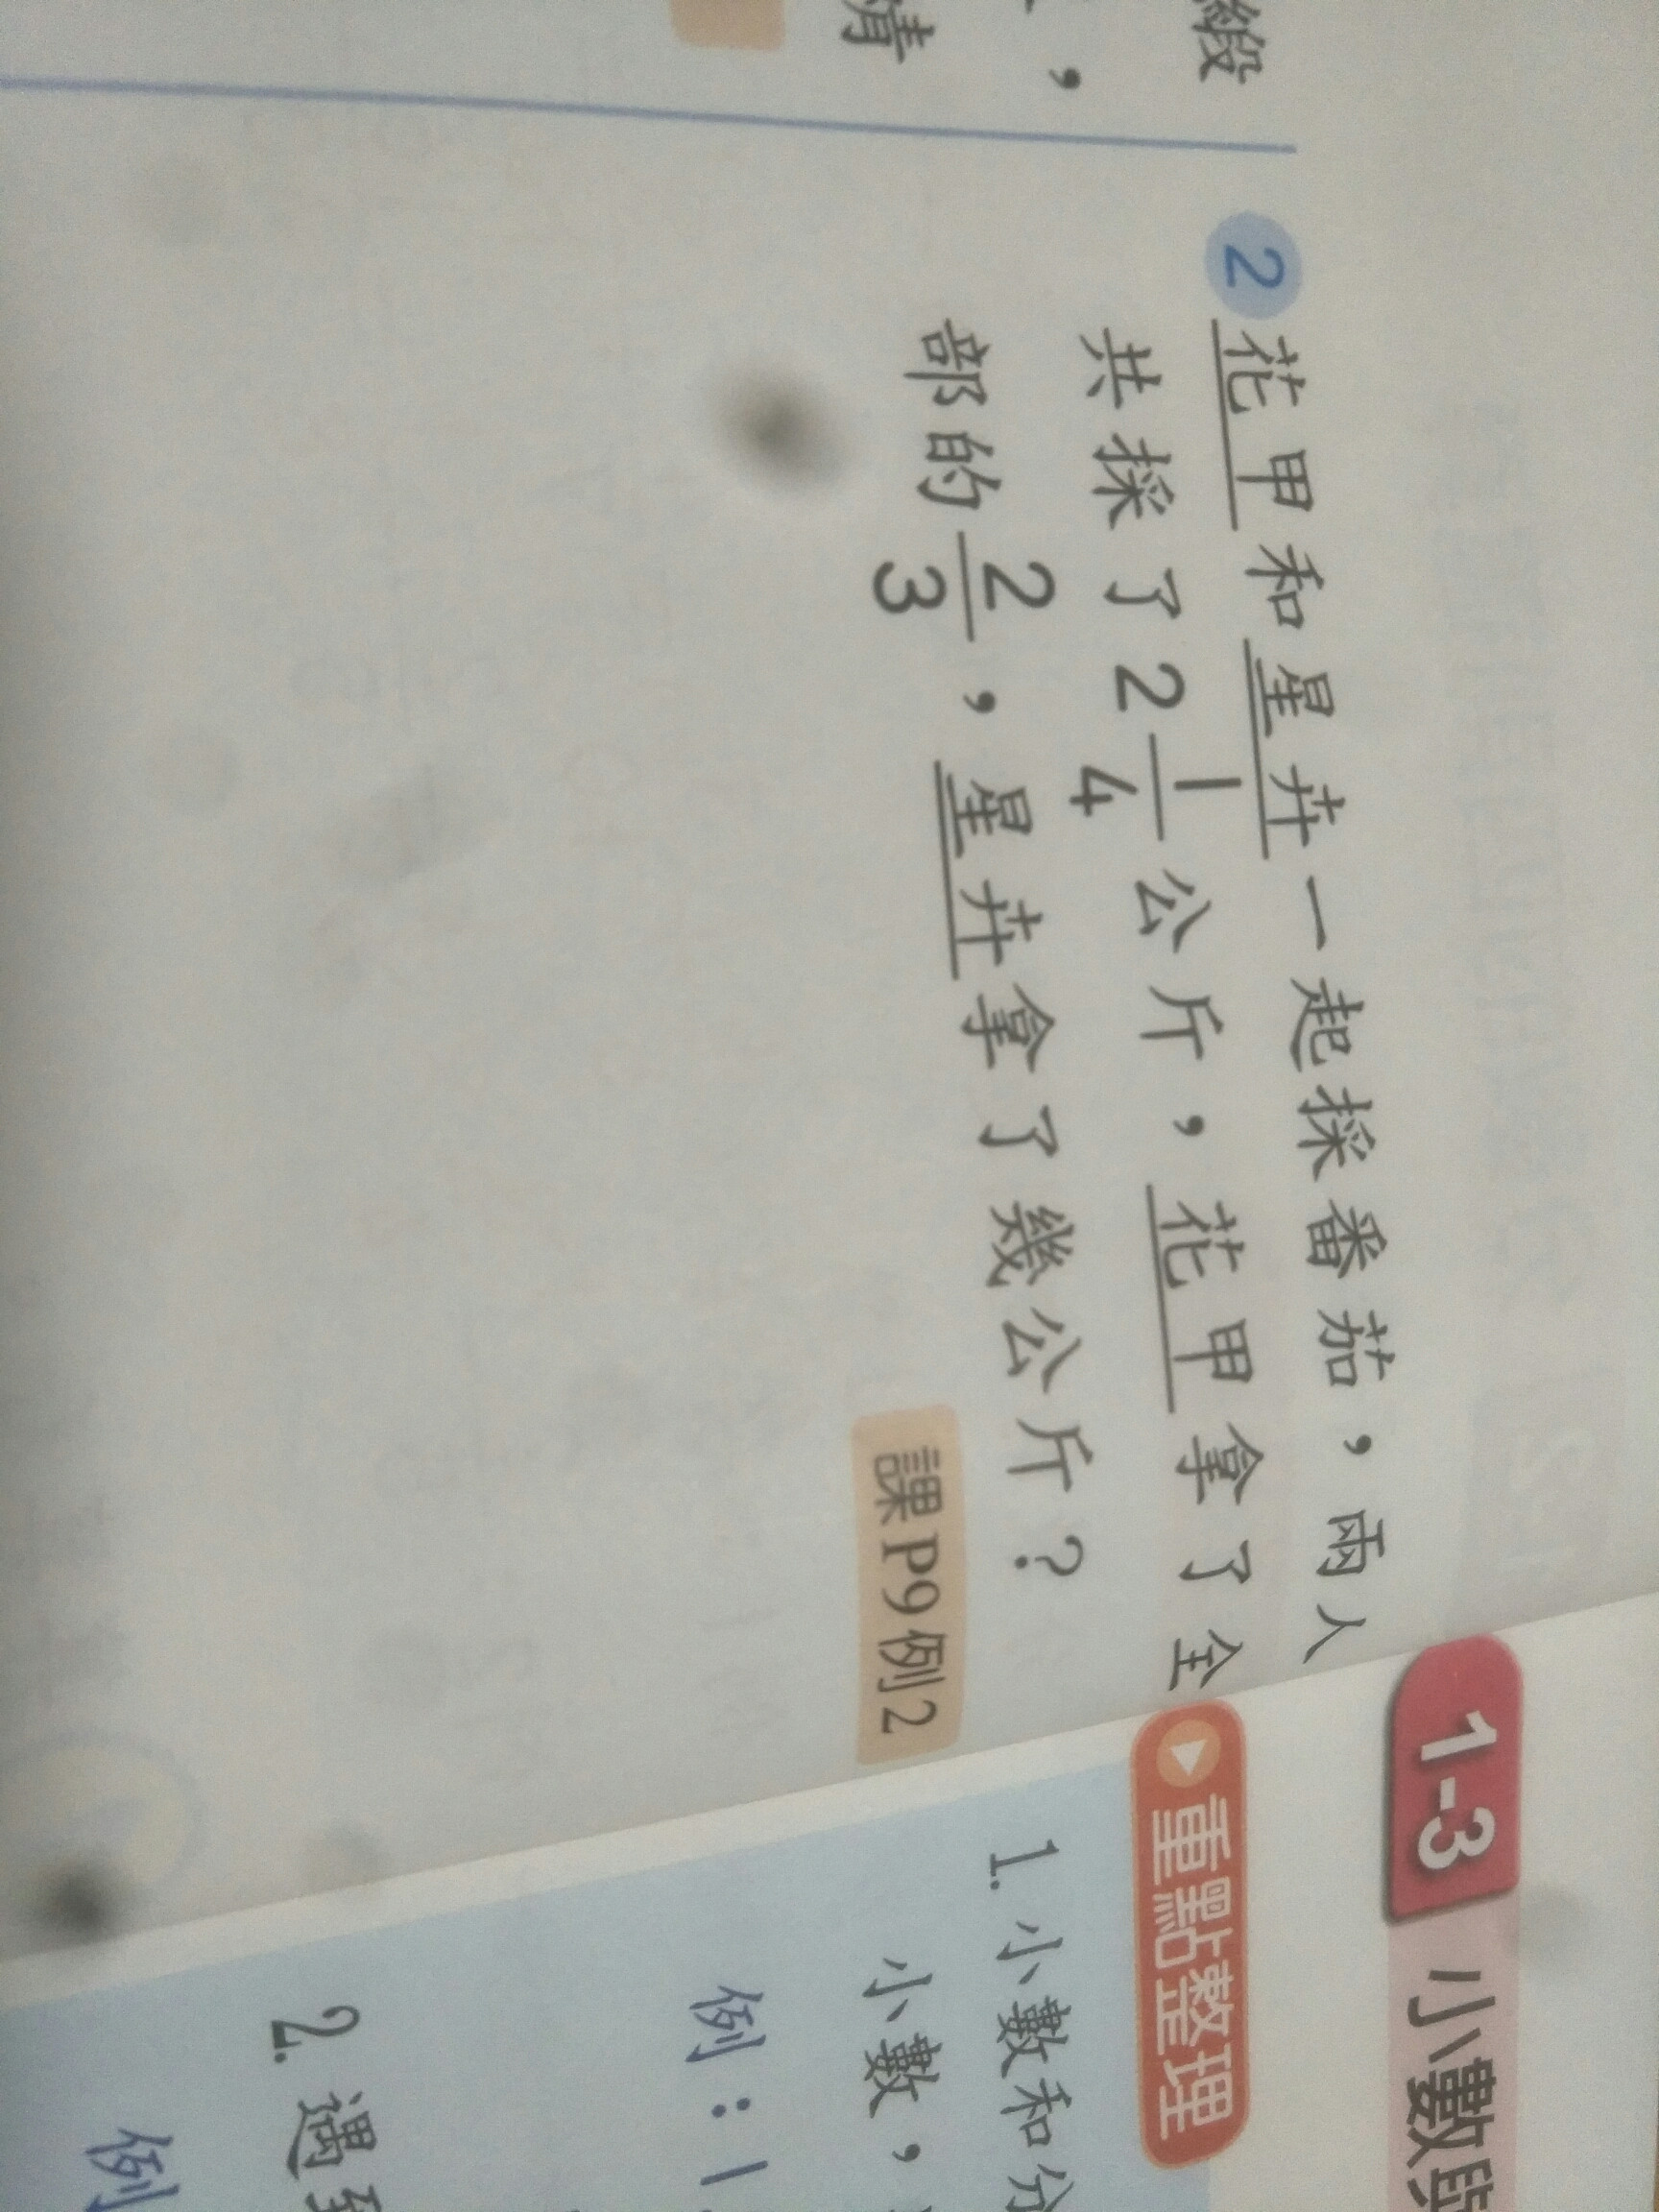 緞
,
情
2 花甲和星卉一起採番茄，兩人
共採了2 1/4 公斤，花甲拿了全
部的 2/3，星卉拿了幾公斤？
課P9例2
1-3 小數與
重點整理
1. 小數和分
小數，
例：1
2. 遇到
例